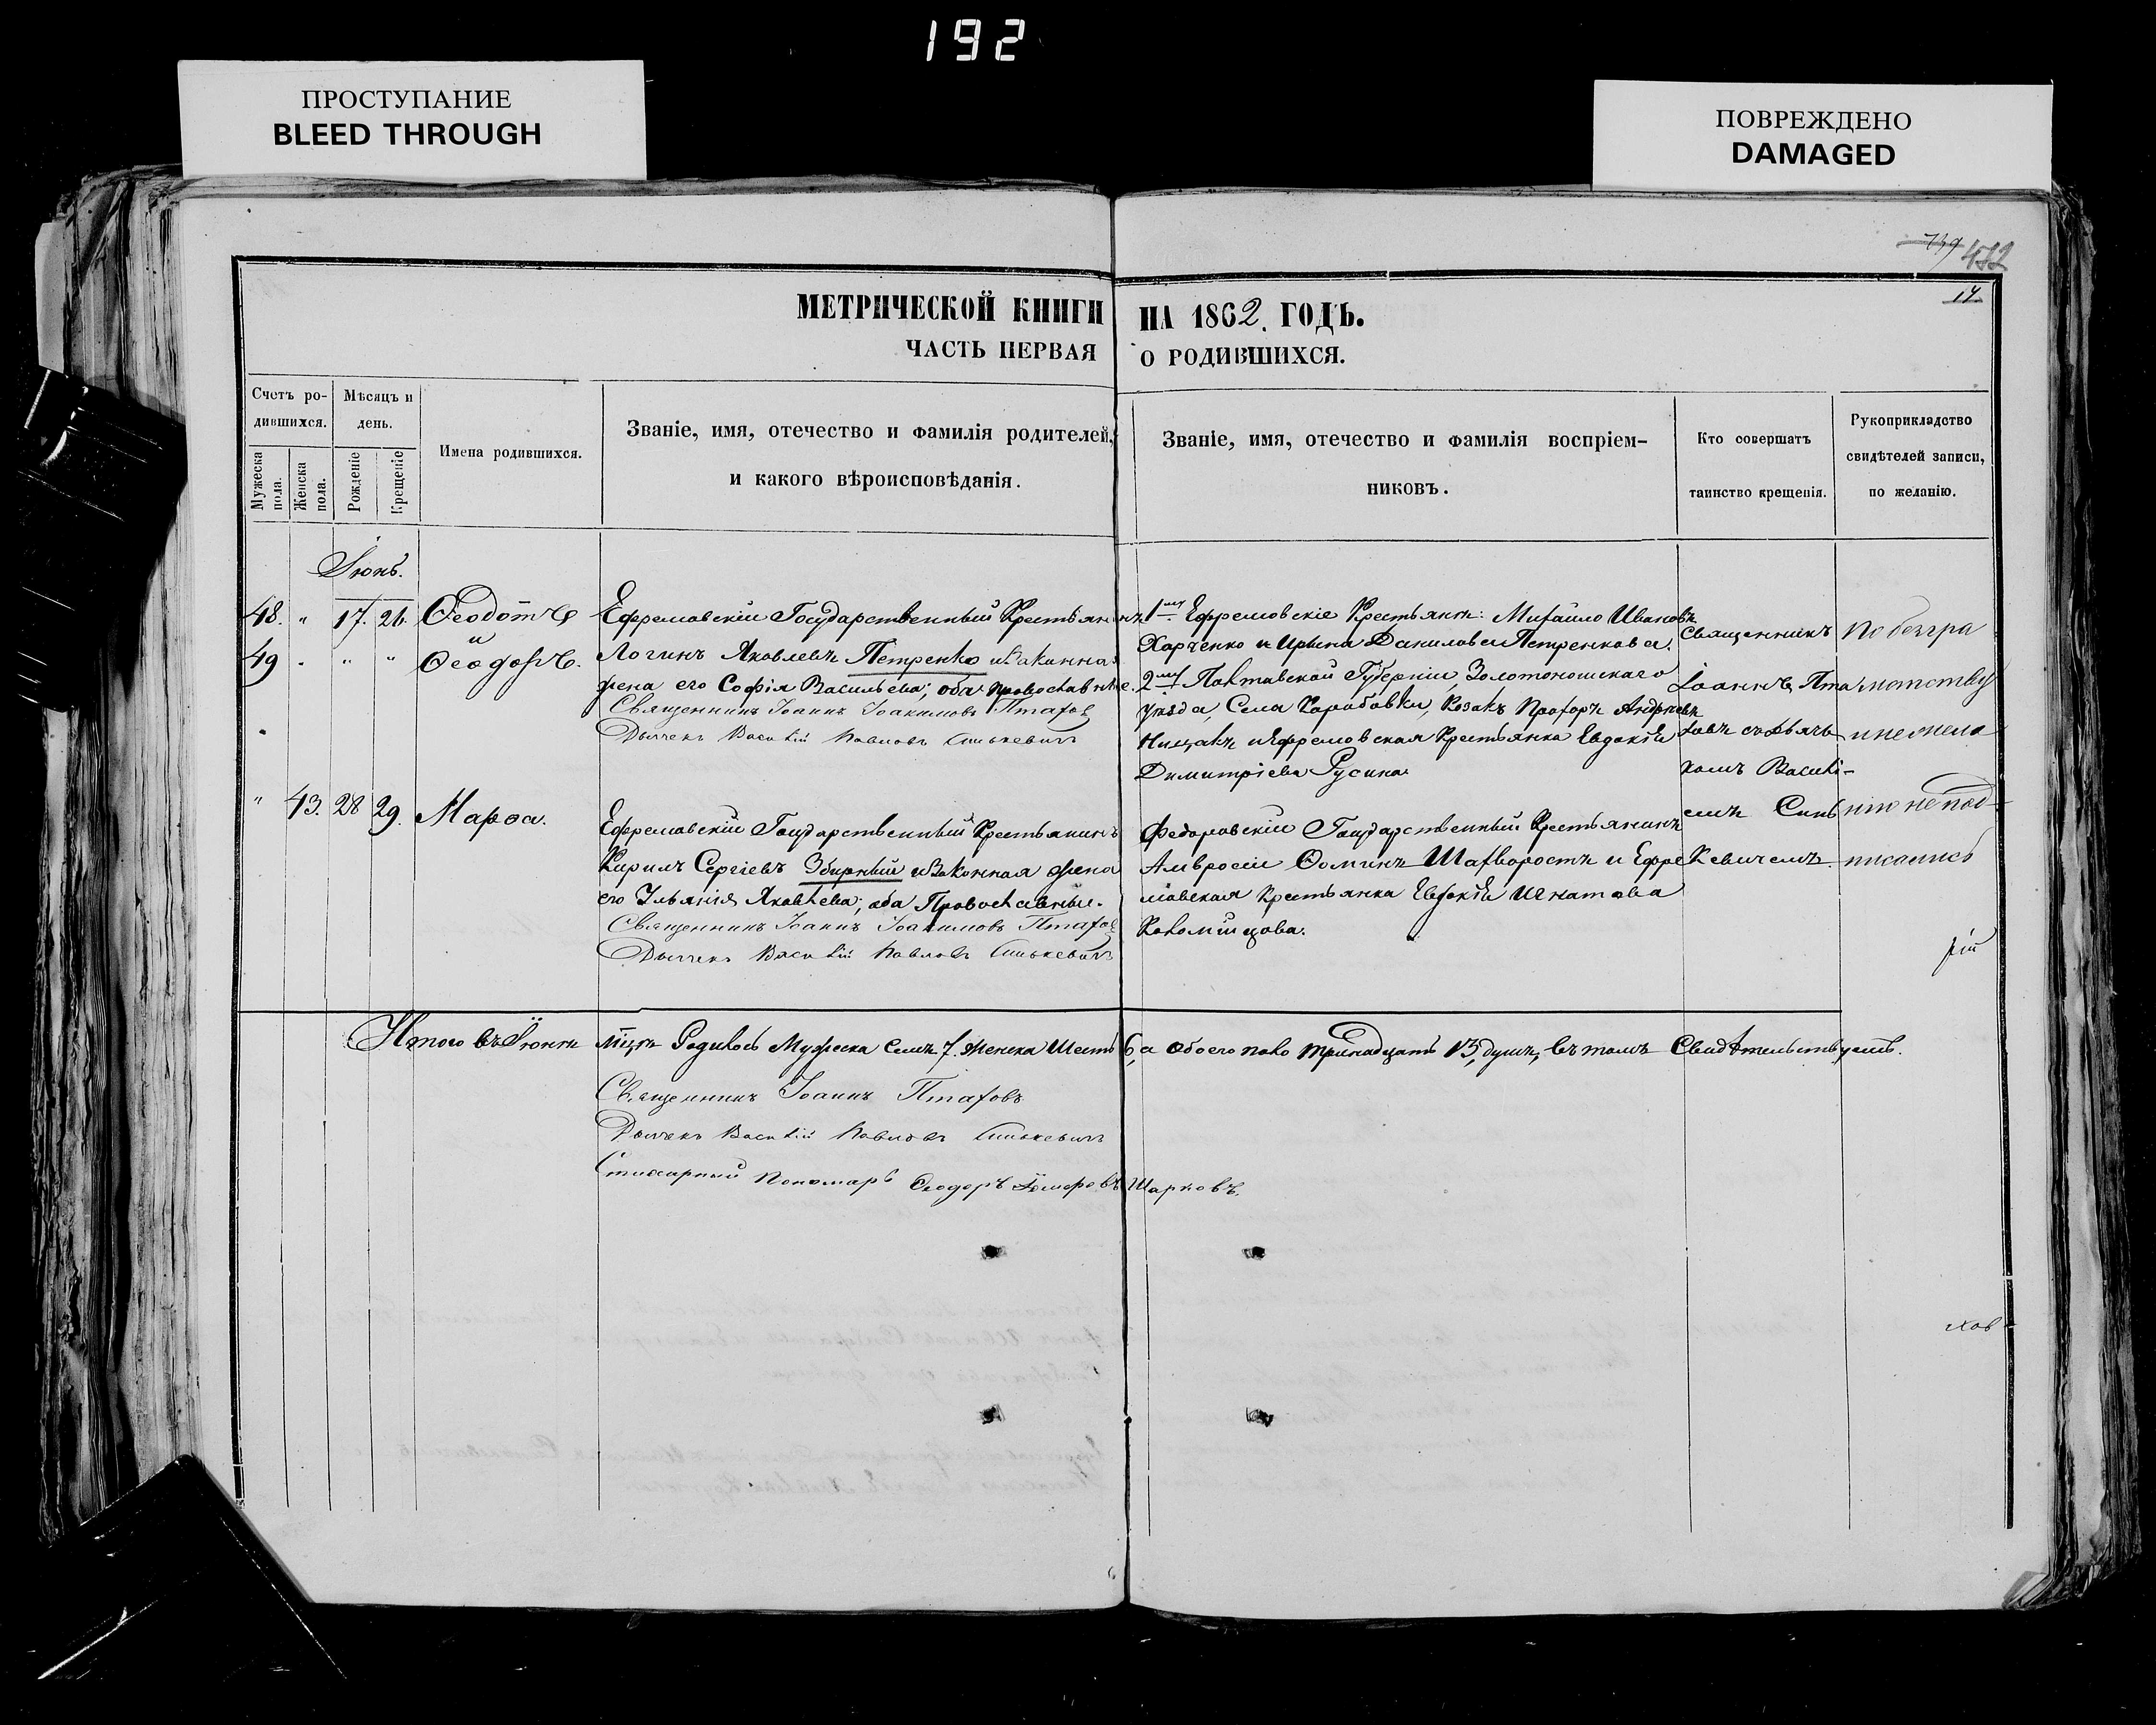 192
ПРОСТУПАНИЕ
BLEED THROUGH
ПОВРЕЖДЕНО
DAMAGED
14
МЕТРИЧЕСКОЙ КНИГИ НА 1862. ГОДЪ.
ЧАСТЬ ПЕРВАЯ О РОДИВШИХСЯ.
Счетъ ро-
дившихся.
Мужеска пола.
Женска пола.
Мѣсяцъ и
день.
Рожденіе
Крещеніе
Имена родившихся.
Званіе, имя, отечество и фамилія родителей,
и какого вѣроисповѣданія.
Званіе, имя, отечество и фамилія воспріем-
никовъ.
Кто совершатъ
таинство крещенія.
Рукоприкладство
свидѣтелей записи,
по желанію.
Іюнь.
48. " 17. 21. Ѳеодотъ
и
49 " " " Ѳеодоръ.
Ефремовскій Государственный Крестьянинъ
Логинъ Яковлевъ Петренко и Законная
жена его Софія Васильева; оба православные.
Священникъ Іоаннъ Іоакимовъ Птаховъ
Дьячекъ Василій Павловъ Синькевичъ
1му Ефремовскіе Крестьяни: Михайло Ивановъ
Харченко и Ирина Данилова Петренкова.
2му Полтавской Губерніи, Золотоношскаго
уѣзда, Села Коробовки, Козакъ Прохоръ Андреевъ
и Ефремовская Крестьянка Евдокія
Димитріева Русина
Священникъ
Іоаннъ Пта
ховъ съ Дьяч
комъ Василі-
емъ Синь
кевичемъ.
По безгра
мотству
и неумѣ
нію не под-
писались
" 43. 28 29. Марѳа.
Ефремовскій Государственный Крестьянинъ
Кирилъ Сергіевъ Збирный и Законная жена
его Ульянія Яковлева; оба Православные.
Священникъ Іоаннъ Іоакимовъ Птаховъ
Дьячекъ Василій Павловъ Синькевичъ
Федоровскій Государственный Крестьянинъ
Амвросій Ѳоминъ Шахворостъ и Ефре
мовская Крестьянка Евдокія Игнатова
Коломійцова.
рій
Итого въ Іюнѣ мцѣ Родилось Мужеска Семъ 7. Женска Шесть 6, а обоего пола тринадцать 13, душъ, въ томъ Свидѣтельствуемъ.
Священникъ Іоаннъ Птаховъ
Дьячекъ Василій Павловъ Синькевичъ
Стихарный Пономарь Ѳеодоръ Шарковъ.
хов-